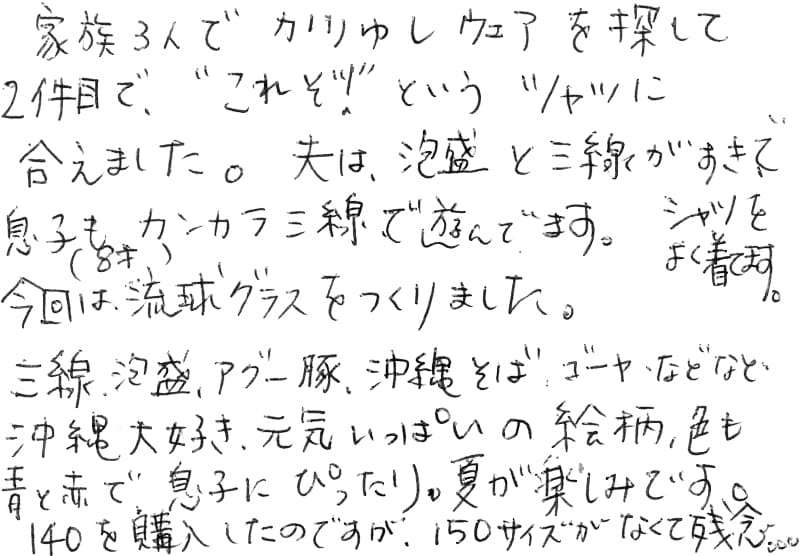 家族3人で かりゆしウェアを探して
2件目で、"これぞ!!"という シャツに
合えました。 夫は、泡盛と三線がすきで、
息子も カンカラ三線で遊んでます。 シャツを
(8才) よく着てます。
今回は、流球グラスをつくりました。
三線、泡盛、アグー豚、沖縄そば、ゴーヤ、などなど
沖縄大好き、元気いっぱいの絵柄、色も
青と赤で 息子に ぴったり。夏が楽しみです。
140を購入したのですが、150サイズがなくて残念。。。